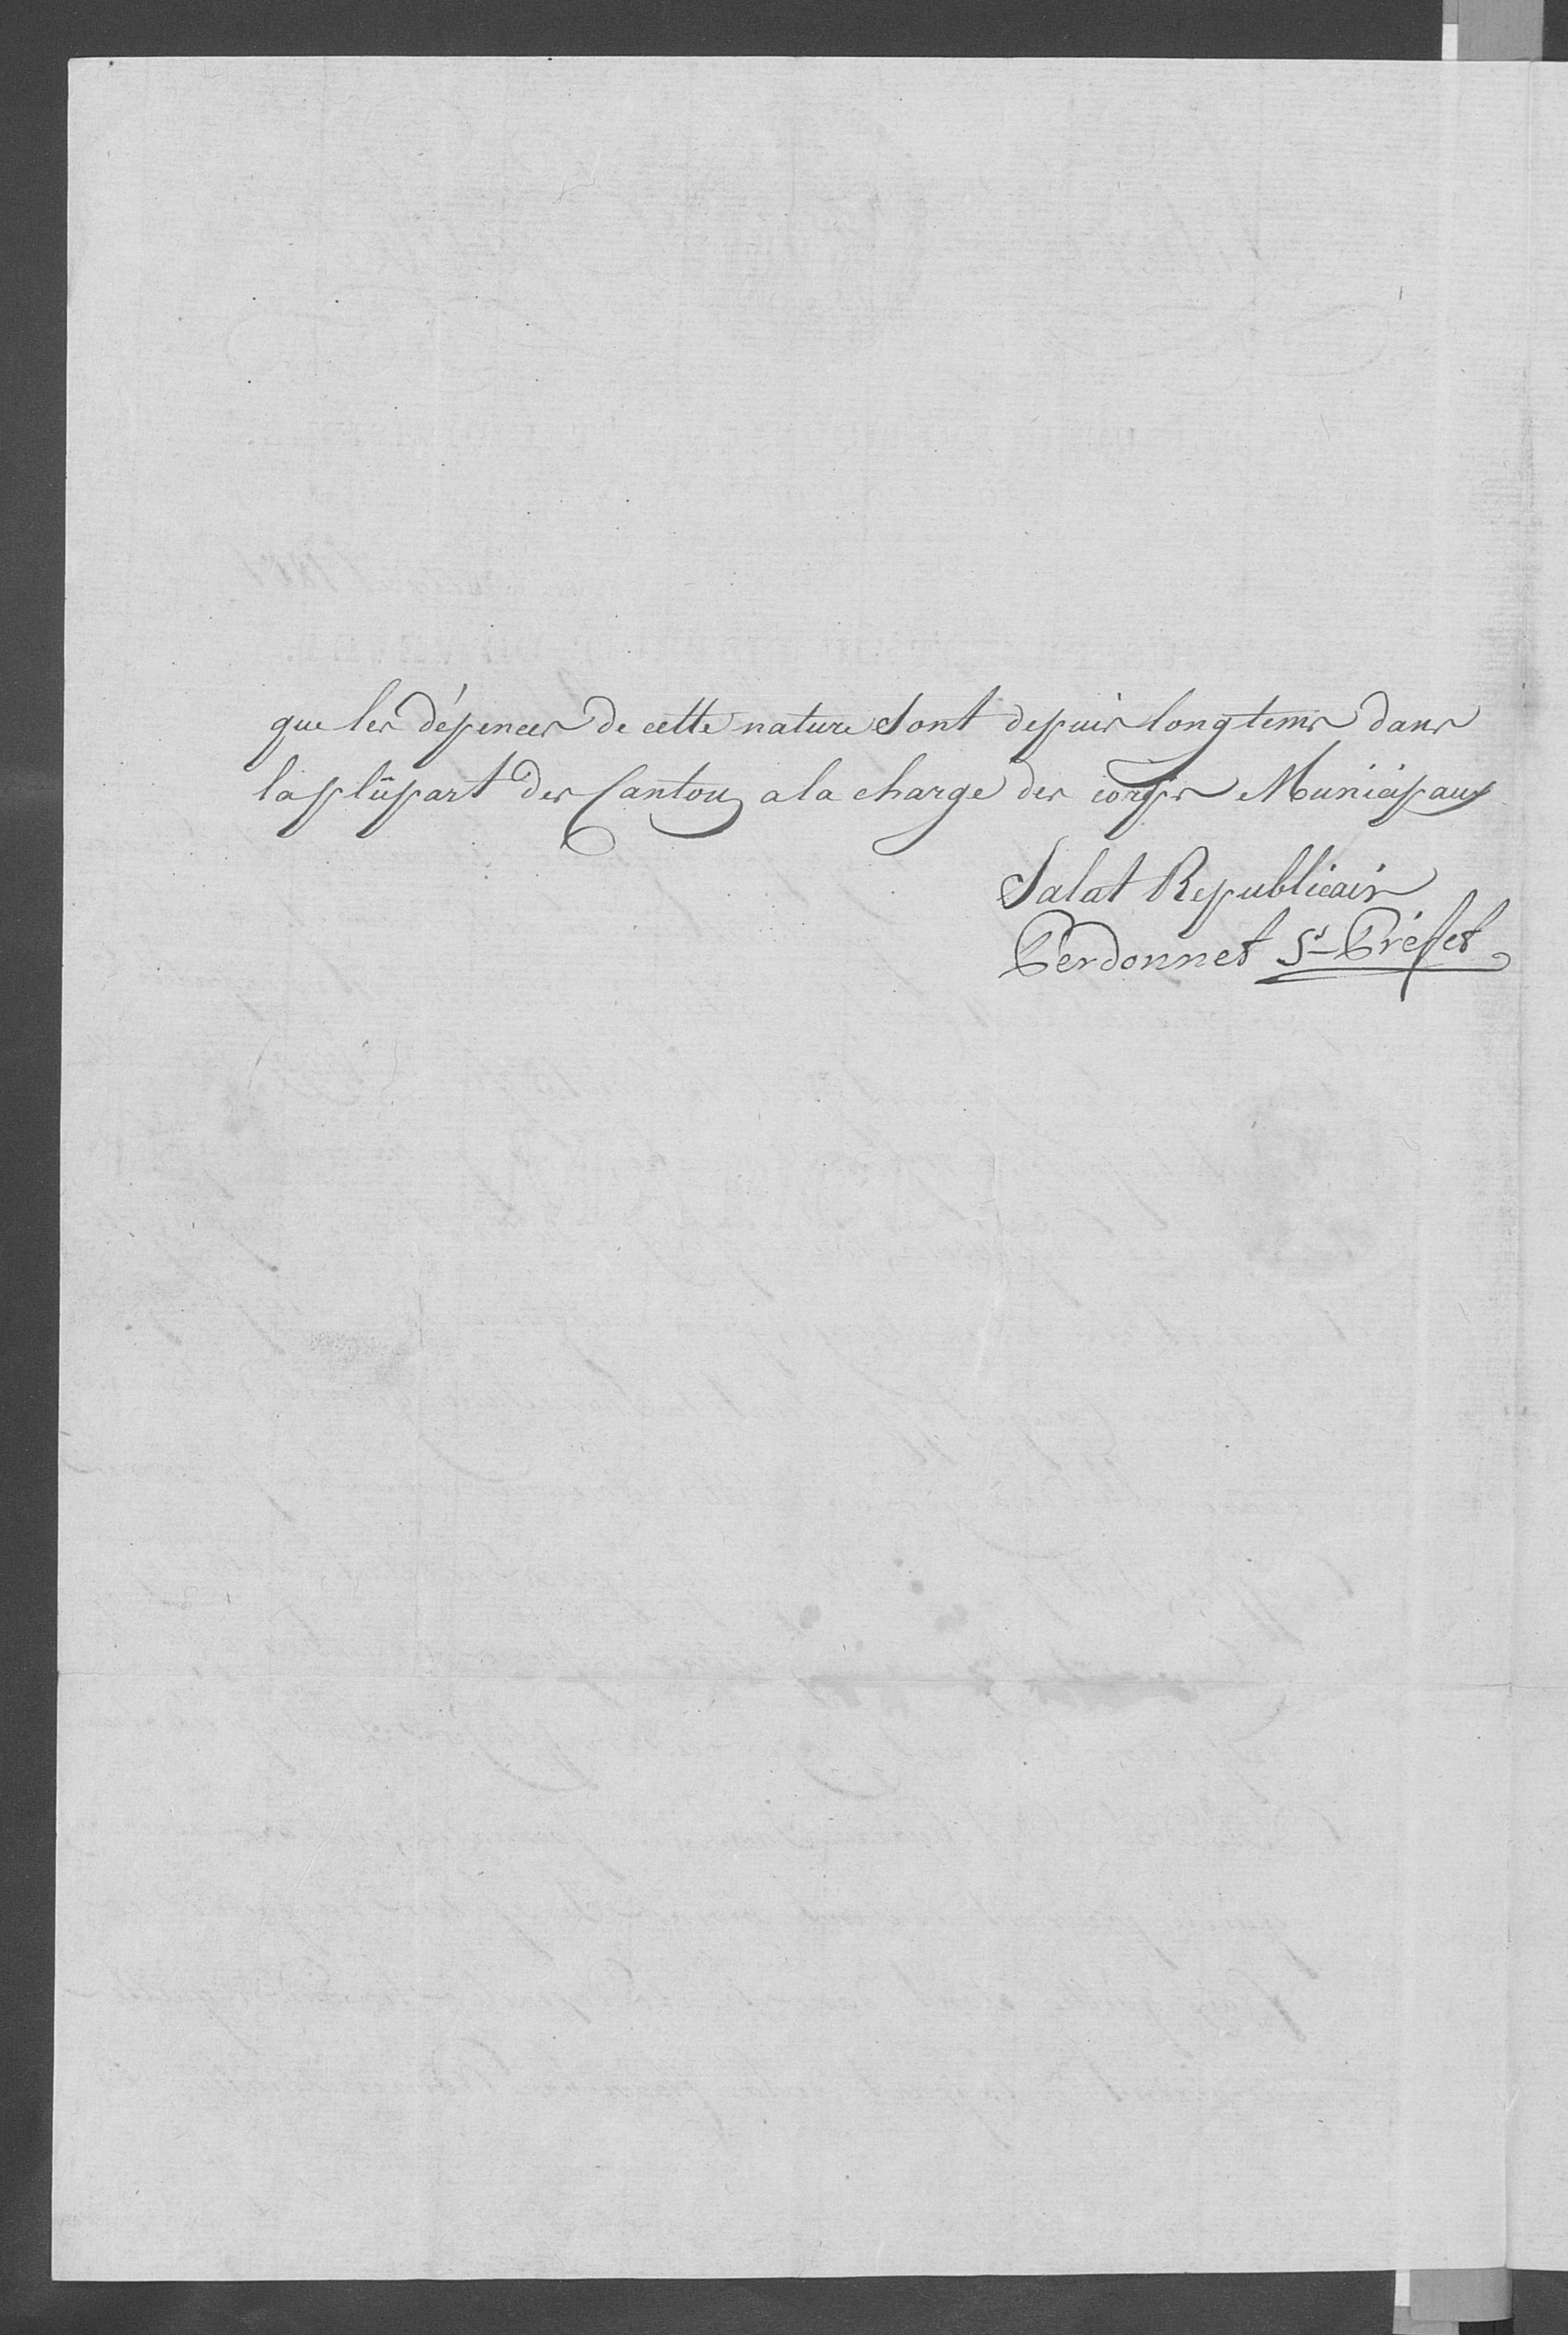 que les dépences de cette nature sont depuis longtems dans
la plûpart des Cantons a la charge des corps Municipaux
Salat Republicain
Perdonnet Ss-Préfet